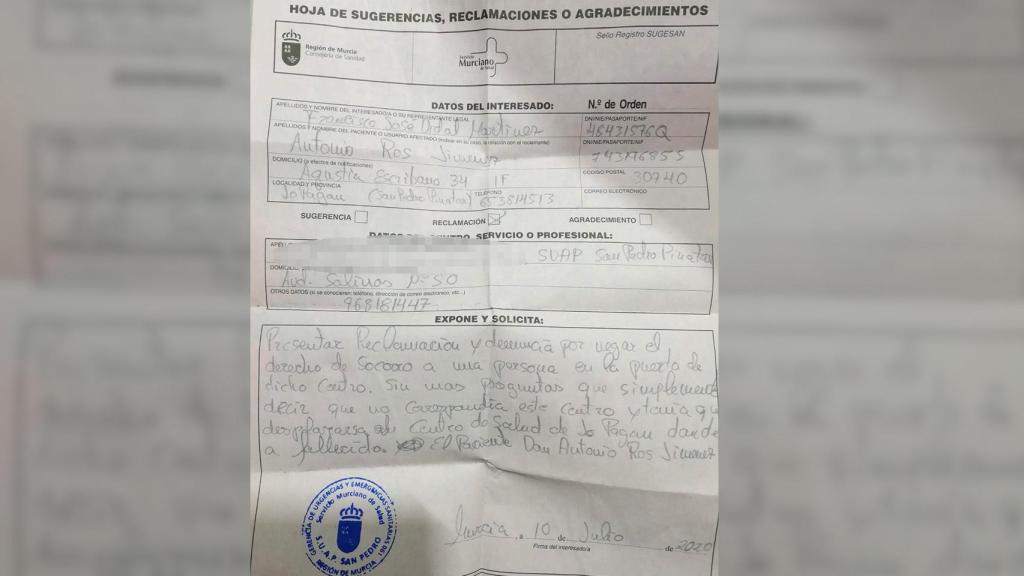 HOJA DE SUGERENCIAS, RECLAMACIONES O AGRADECIMIENTOS
Región de Murcia
Consejería de Sanidad
Servicio
Murciano
de Salud
Sello Registro SUGESAN
DATOS DEL INTERESADO: N.º de Orden
APELLIDOS Y NOMBRE DEL INTERESADO/A O SU REPRESENTANTE LEGAL DNI/NIE/PASAPORTE/NIF
Francisco Jose Vidal Martinez
APELLIDOS Y NOMBRE DEL PACIENTE O USUARIO AFECTADO (indicar en su caso, la relación con el reclamante) DNI/NIE/PASAPORTE/NIF
Antonio Ros Jimenez
DOMICILIO (a efectos de notificaciones) CÓDIGO POSTAL
Agustin Escribano 34 1F 30740
LOCALIDAD Y PROVINCIA TELÉFONO CORREO ELECTRÓNICO
Lo Pagan (San Pedro Pinatar) 653814513
SUGERENCIA RECLAMACIÓN AGRADECIMIENTO
SERVICIO O PROFESIONAL:
SUAP San Pedro Pinatar
Avd. Salinas Nº 50
OTROS DATOS (si se conocieren: teléfono, dirección de correo electrónico, etc...)
968181447
EXPONE Y SOLICITA:
Presentar Reclamación y denuncia por negar el
derecho de Socorro a una persona en la puerta de
dicho Centro. Sin mas preguntas que simplemente
decir que no correspondia este centro y tenia que
desplazarse al Centro de Salud de Lo Pagan donde
a fallecido El Paciente Don Antonio Ros Jimenez
GERENCIA DE URGENCIAS Y EMERGENCIAS SANITARIAS 061
Servicio Murciano de Salud
S.U.A.P. SAN PEDRO
REGIÓN DE MURCIA
Murcia, a 10 de Julio de 2020
Firma del interesado/a